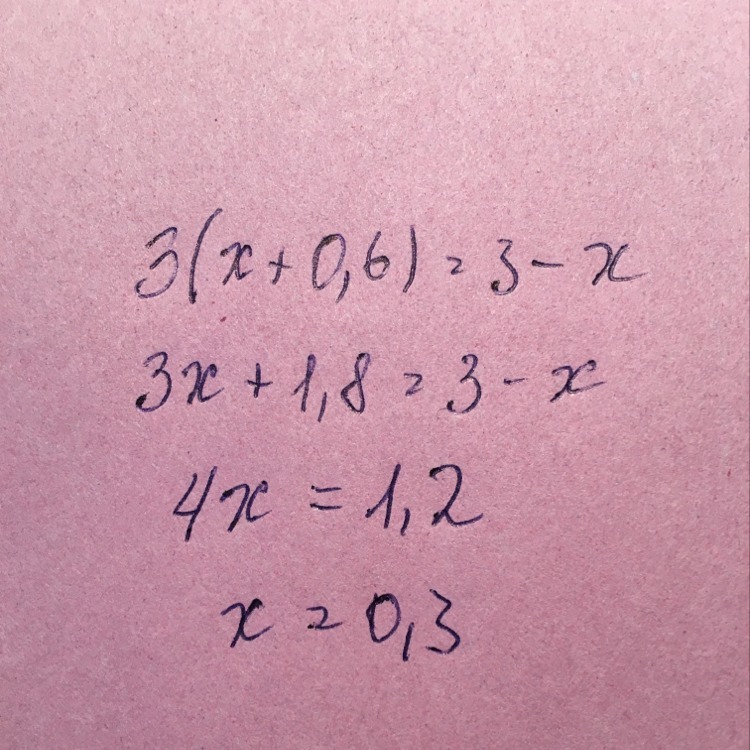 3(x+0,6)=3-x
3x+1,8=3-x
4x=1,2
x=0,3